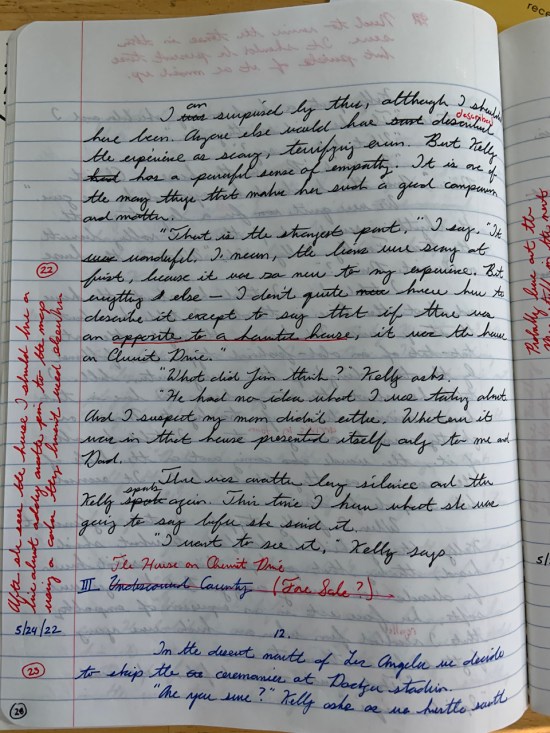 I am was surprised by this, although I should
have been. Anyone else would have described
the experience as scary, terrifying even. But Kelly
has a powerful sense of empathy. It is one of
the many things that makes her such a good companion
and mother.
"That is the strangest part," I say. "It
was wonderful. I mean, the lions were scary at
first, because it was so new to my experience. But
everything else — I don't quite know how to
describe it except to say that if there was
an opposite to a haunted house, it was the house
on Chemist Drive."
"What did Jim think?" Kelly asks.
"He had no idea what I was talking about
And I suspect my mom didn't either. Whatever it
was in that house presented itself only to me and
Dad.
There was another long silence and then
Kelly spoke again. This time I knew what she was
going to say before she said it.
"I want to see it," Kelly says
The House on Drive
III Undiscovered Country (For Sale?)
5/24/22
12.
In the desert north of Los Angeles we decide
to skip the ceremonies at Dodger stadium.
"Are you sure?" Kelly asks as we hurtle south
22
After she sees the house I should have a
line about adding another pin to the map
using a color they haven't used elsewhere
23
28
Probably leave out the
rece
5/